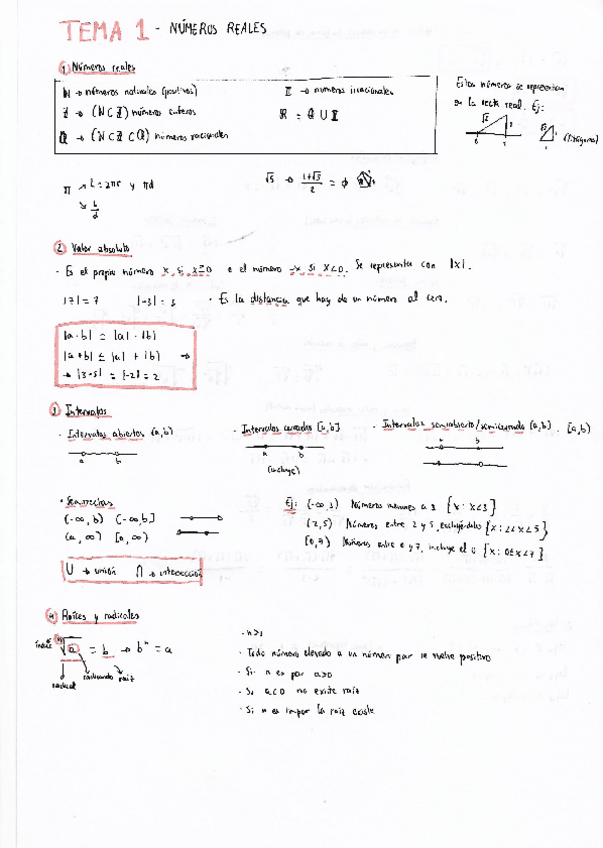 TEMA 1 - NÚMEROS REALES
1 Números reales
N → números naturales (positivos)
Z → (N ⊂ Z) números enteros
Q → (N ⊂ Z ⊂ Q) números racionales
I → números irracionales
R = Q U I
Estos números se representan
en la recta real. Ej:
(Pitágoras)
π → L = 2πr y πd
√5 → (1+√5)/2 = φ
2 Valor absoluto
· Es el propio número x, si x≥0 o el número -x si x<0. Se representa con |x|.
|7| = 7 |-3| = 3 · Es la distancia que hay de un número al cero.
|a·b| = |a| · |b|
|a+b| ≤ |a| + |b| →
→ |3-5| = |-2| = 2
3 Intervalos
· Intervalos abiertos (a,b)
a b
· Intervalos cerrados [a,b]
a b
(incluye)
· Intervalos semiabierto/semicerrado (a,b] . [a,b)
a b
· Semirrectas
(-∞, b) (-∞,b]
(a, ∞) [a, ∞)
Ej: (-∞,3) Números menores a 3 {x: x<3}
(2,5) Números entre 2 y 5, excluyéndolos {x: 2<x<5}
[0,7) Números entre 0 y 7, incluye el 0 {x: 0≤x<7}
U → unión ∩ → intersección
4 Raíces y radicales
índice ⁿ√a = b → bⁿ = a
radical radicando raíz
· n>1
· Todo número elevado a un número par se vuelve positivo
· Si n es par a≥0
· Si a<0 no existe raíz
· Si n es impar la raíz existe